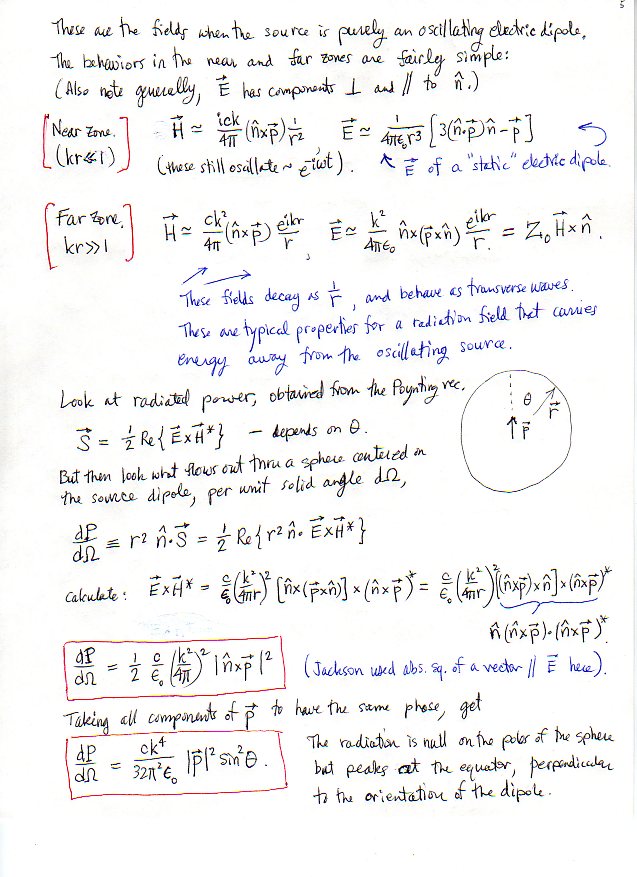 5
These are the fields when the source is purely an oscillating electric dipole.
The behaviors in the near and far zones are fairly simple:
(Also note generally, E⃗ has components ⊥ and // to n̂.)
Near Zone. (kr≪1)
H⃗ ≃ ick/4π (n̂×p⃗) 1/r² E⃗ ≃ 1/4πε₀r³ [3(n̂·p⃗)n̂ − p⃗]
(these still oscillate ~ e^-iωt). ↖ E⃗ of a "static" electric dipole.
Far Zone. kr>>1
H⃗ ≃ ck²/4π (n̂×p⃗) e^ikr/r , E⃗ ≃ k²/4πε₀ n̂×(p⃗×n̂) e^ikr/r. = Z₀ H⃗×n̂.
These fields decay as 1/r, and behave as transverse waves.
These are typical properties for a radiation field that carries
energy away from the oscillating source.
Look at radiated power, obtained from the Poynting vec.
S⃗ = ½ Re{E⃗×H⃗*} — depends on θ.
θ r⃗ p⃗
But then look what flows out thru a sphere centered on
the source dipole, per unit solid angle dΩ,
dP/dΩ ≡ r² n̂·S⃗ = ½ Re{r² n̂· E⃗×H⃗*}
calculate: E⃗×H⃗* = c/ε₀ (k²/4πr)² [n̂×(p⃗×n̂)]×(n̂×p⃗)* = c/ε₀ (k²/4πr)² [(n̂×p⃗)×n̂]×(n̂×p⃗)*
n̂ (n̂×p⃗)·(n̂×p⃗)*.
dP/dΩ = 1/2 c/ε₀ (k²/4π)² |n̂×p⃗|² (Jackson used abs. sq. of a vector // E⃗ here).
Taking all components of p⃗ to have the same phase, get
dP/dΩ = ck⁴/32π²ε₀ |p⃗|² sin²θ.
The radiation is null on the poles of the sphere
but peaks at the equator, perpendicular
to the orientation of the dipole.